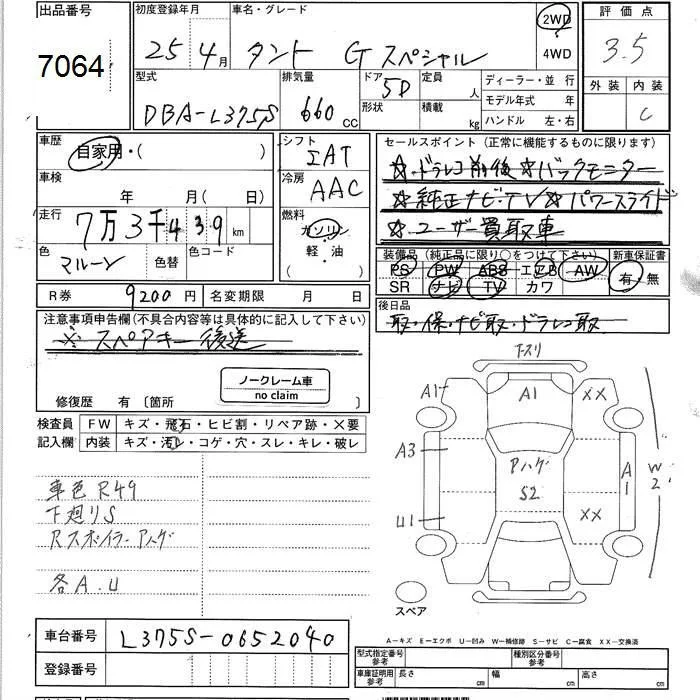 出品番号
7064
初度登録年月
25年4月
車名・グレード
タント Gスペシャル
2WD
4WD
評価点
3.5
外装 内装
C
型式
DBA-L375S
排気量
660 CC
ドア
5D
形状
定員
人
積載
kg
ディーラー・並行
モデル年式 年
ハンドル 左・右
車歴
自家用・( )
車検
年 月( 日)
走行
7万3千439 km
色
マルーン
色替
色コード
シフト
IAT
冷房
AAC
燃料
ガソリン
軽・油
セールスポイント(正常に機能するものに限ります)
☆ドラレコ前後☆バックモニター
☆純正ナビ・TV☆パワースライド
☆ユーザー買取車
装備品(純正品に限り○をつけて下さい)
PS PW ABS エアB AW
SR ナビ TV カワ
新車保証書
有・無
R券 9200円
名変期限 月 日
後日品
取・保・ナビ取・ドラレコ取
注意事項申告欄(不具合内容等は具体的に記入して下さい)
※スペアキー後送
ノークレーム車
no claim
修復歴 有〔箇所 〕
検査員
記入欄
FW キズ・飛石・ヒビ割・リペア跡・×要
内装 キズ・汚レ・コゲ・穴・スレ・キレ・破レ
車色 R49
下廻りS
Rスポイラーアハゲ
各A.U
下スリ
A1
A1
XX
A3
アハゲ
S2
A1
W2
U1
XX
スペア
A－キズ E－エクボ U－凹み W－補修跡 S－サビ C－腐食 XX－交換済
車台番号
L375S-0652040
登録番号
型式指定番号
参考
種別区分番号
参考
車庫証明用
参考
長さ cm
幅 cm
高さ cm